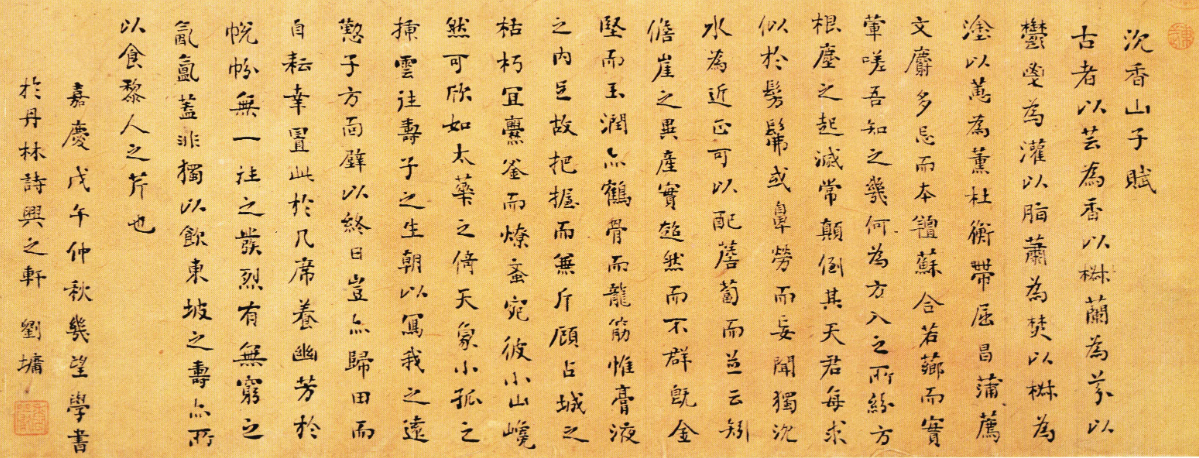 沉香山子賦
古者以芸為香以椒蘭為芬以
鬱鬯為灌以脂蕭為焚以椒為
塗以蕙為薰杜衡帶屈昌蒲薦
文麝多忌而本羶蘇合若薌而實
葷嗟吾知之幾何為方入之所紛方
根塵之起滅常顛倒其天君每求
似於髣髴或鼻勞而妄聞獨沉
水為近正可以配薝蔔而並云矧
儋崖之異產實超然而不群既金
堅而玉潤亦鶴骨而龍筋惟膏液
之內足故把握而無斤顧占城之
枯朽宜爨釜而燎蚉宛彼小山巉
然可欣如太華之倚天象小孤之
插雲往壽子之生朝以寫我之遠
懃子方面壁以終日豈亦歸田而
自耘幸置此於几席養幽芳於
帨帉無一往之發烈有無窮之
氤氳蓋非獨以飲東坡之壽亦所
以食黎人之芹也
嘉慶戊午仲秋幾望學書
於丹林詩興之軒 劉墉